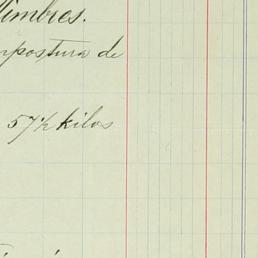 Timbres.
mpostura de
57½ kilos